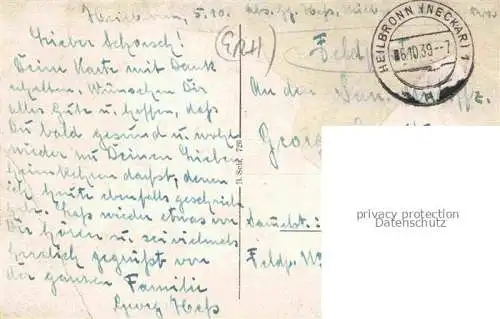 Heilbronn, 5.10.
Lieber Schorsch!
Deine Karte mit Dank
erhalten. Wünschen Dir
alles Gute u. hoffen, daß
Du bald gesund u. wohl
wieder zu Deinen Lieben
heimkehren darfst, denen
ich heute ebenfalls geschrieb
Laß wieder etwas von
Dir hören u. sei vielmals
herzlich gegrüßt von
der ganzen Familie
Georg Heß
(GRH)
B. Seit. 726
Abs. Gg. Heß,
Feld
HEILBRONN (NECKAR) 1
06.10.39.-7
An den San.
Georg
privacy protection
Datenschutz
Feldp. Nr